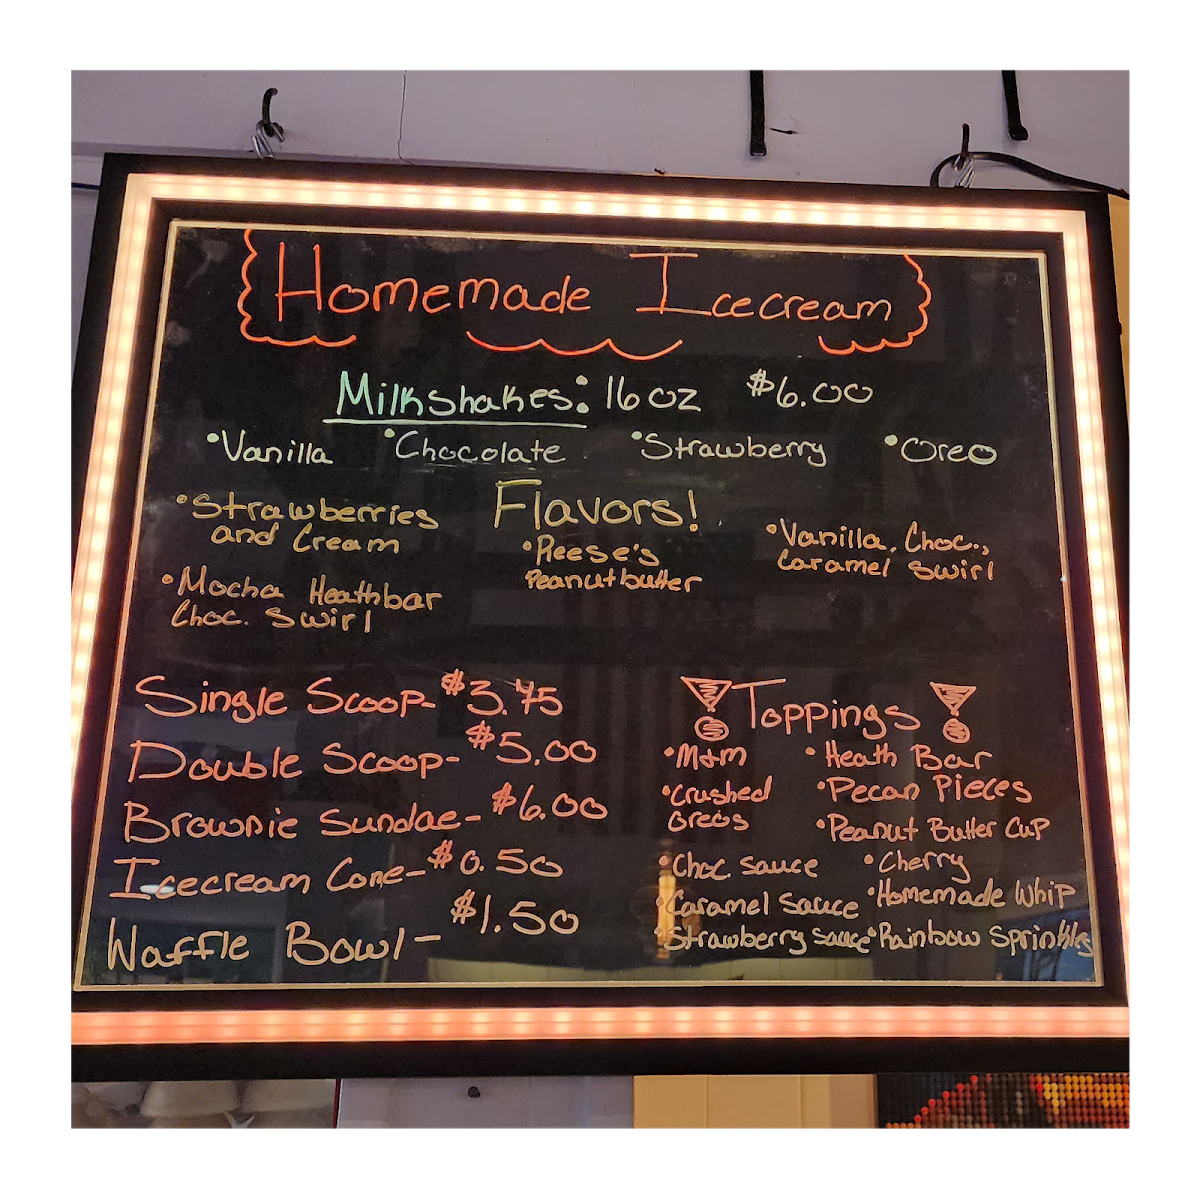 Homemade Icecream
Milkshakes: 16 oz $6.00
•Vanilla •Chocolate •Strawberry •Oreo
Flavors!
•Strawberries
and Cream
•Mocha Heathbar
Choc. Swirl
•Reese's
Peanutbutter
•Vanilla, Choc.,
Caramel Swirl
Single Scoop- $3.75
Double Scoop- $5.00
Brownie Sundae- $6.00
Icecream Cone- $0.50
Waffle Bowl- $1.50
Toppings
•M+m
•Crushed
Oreos
•Choc Sauce
•Caramel Sauce
•Strawberry Sauce
•Heath Bar
•Pecan Pieces
•Peanut Butter Cup
•Cherry
•Homemade Whip
•Rainbow Sprinkles